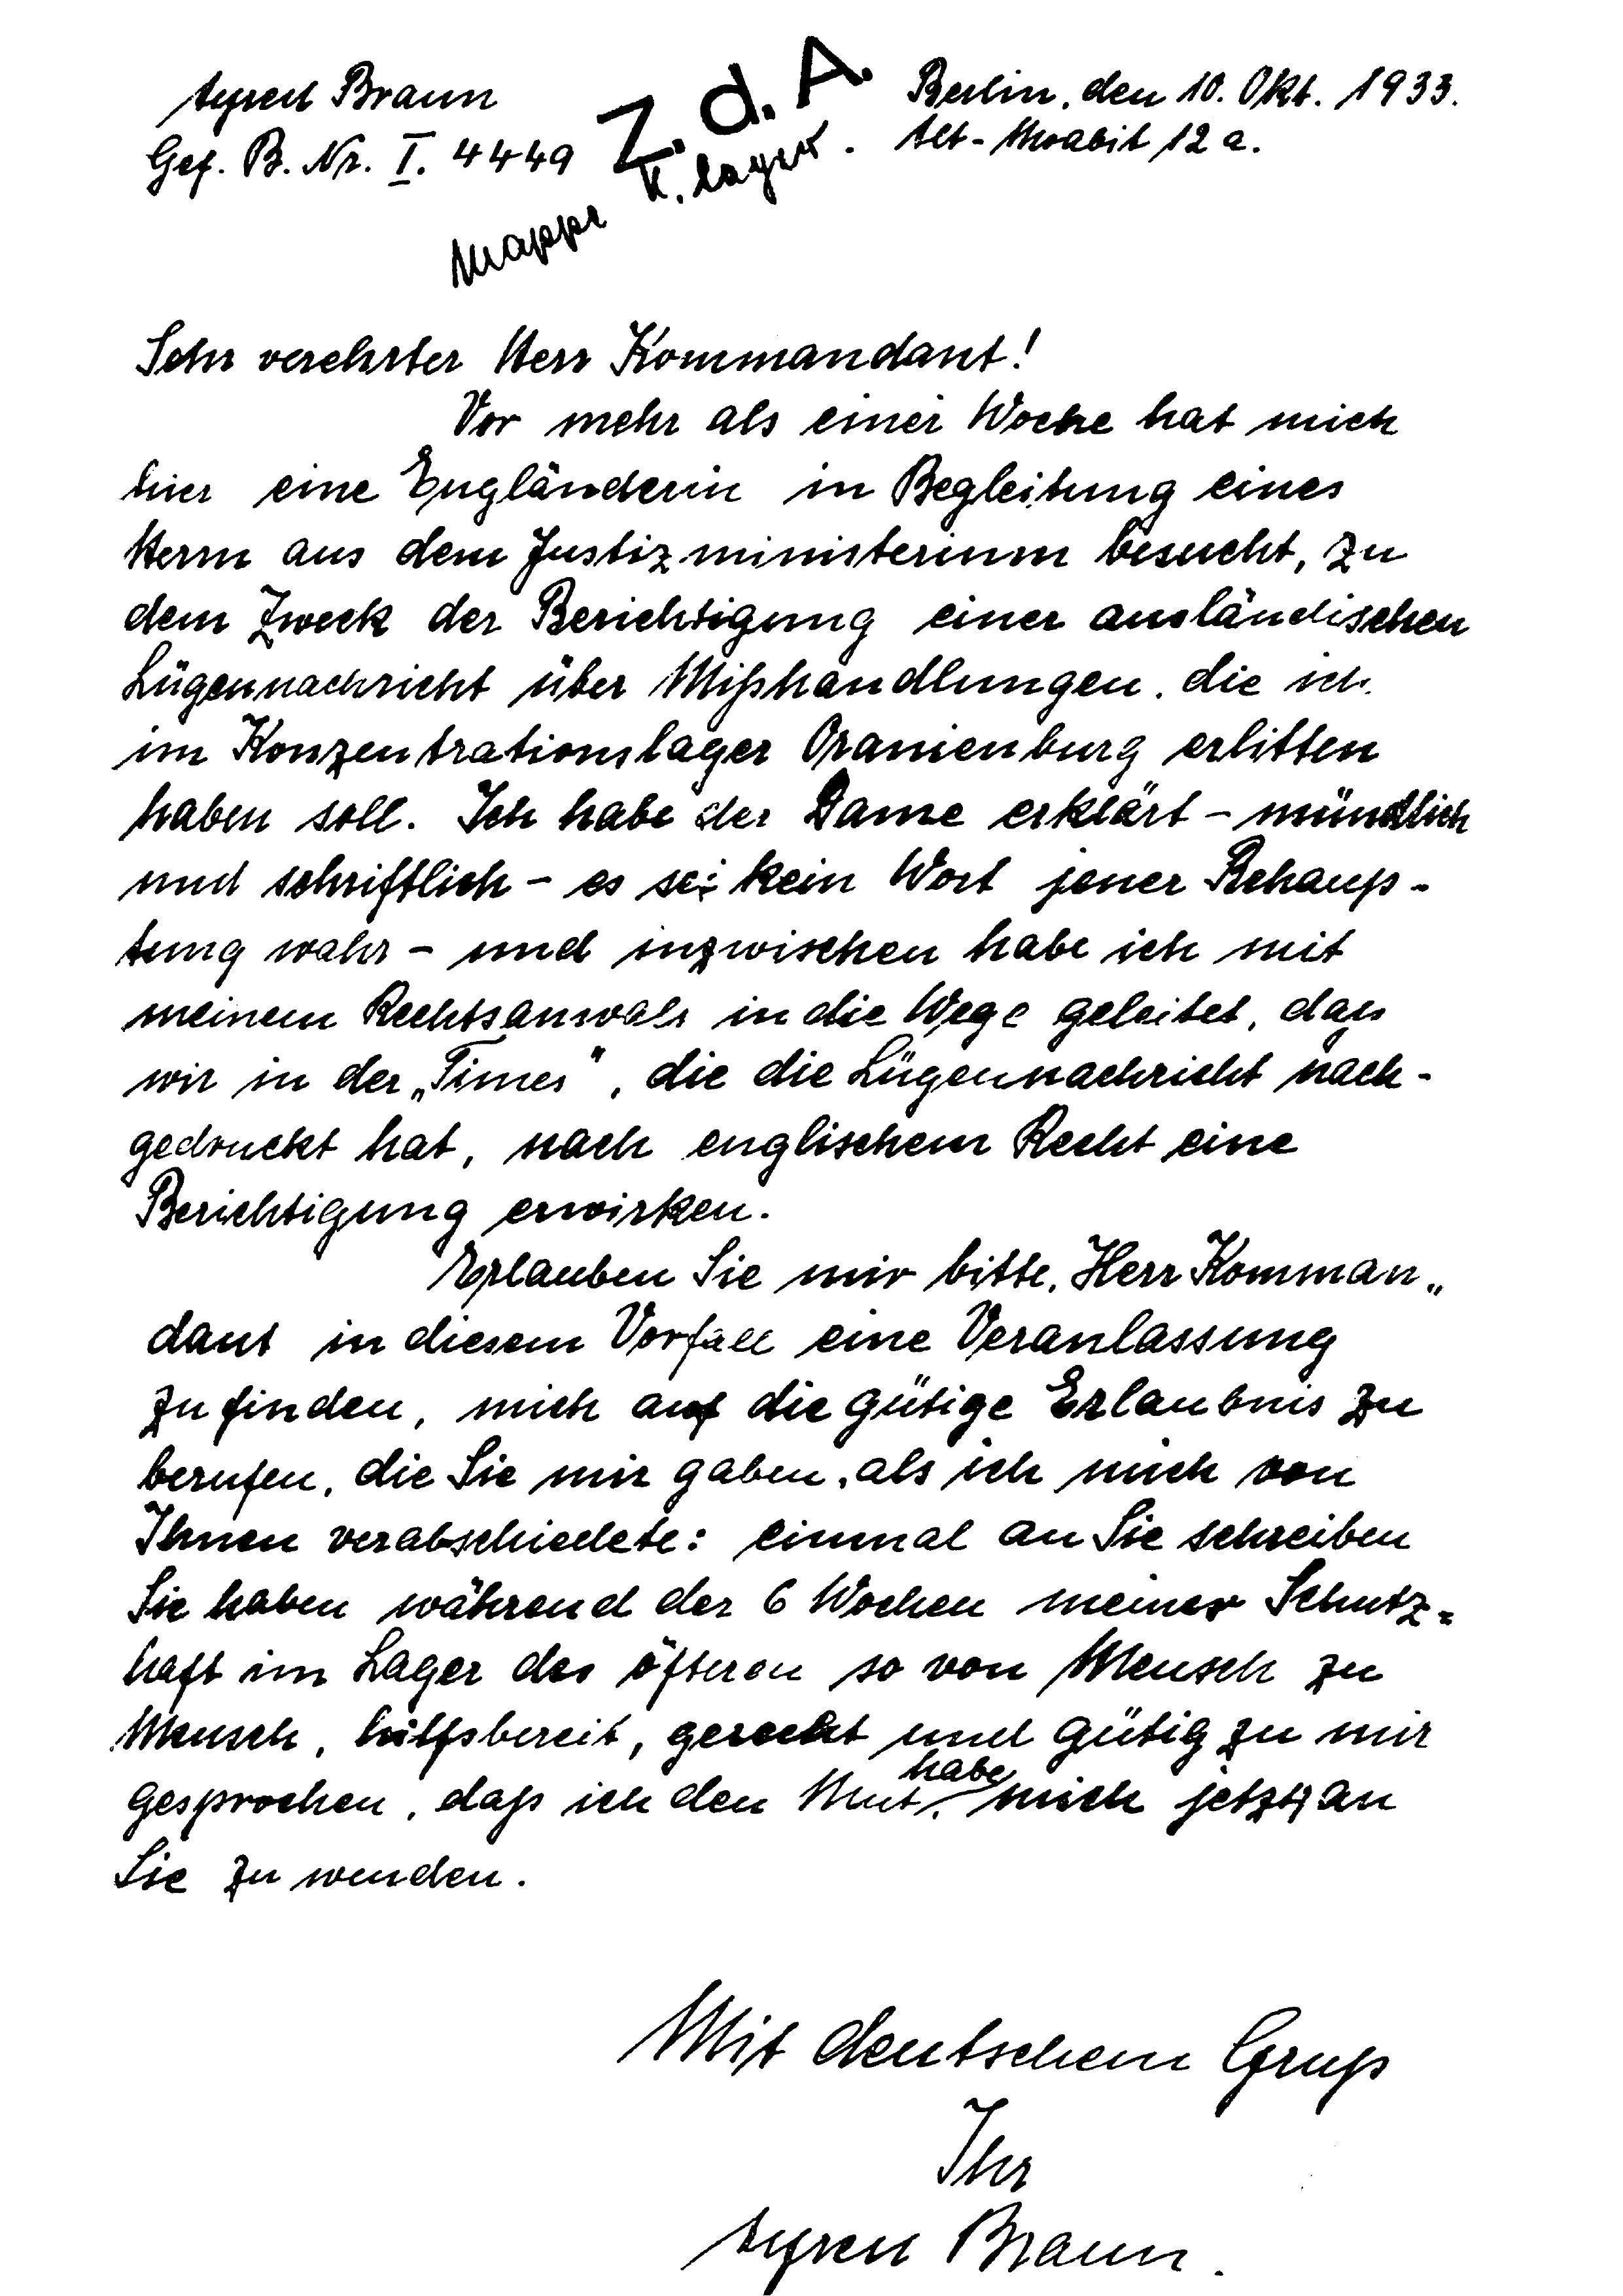 Alfred Braun
Gef. B. Nr. I. 4449
Z. d. A.
Mappe K. lager.
Berlin, den 10. Okt. 1933.
Alt-Moabit 12 a.
Sehr verehrter Herr Kommandant!
Vor mehr als einer Woche hat mich
hier eine Engländerin in Begleitung eines
Herrn aus dem Justizministerium besucht, zu
dem Zweck der Berichtigung einer ausländischen
Lügennachricht über Mißhandlungen, die ich
im Konzentrationslager Oranienburg erlitten
haben soll. Ich habe der Dame erklärt - mündlich
und schriftlich - es sei kein Wort jener Behaup-
tung wahr - und inzwischen habe ich mit
meinem Rechtsanwalt in die Wege geleitet, daß
wir in der „Times", die die Lügennachricht nach-
gedruckt hat, nach englischem Recht eine
Berichtigung erwirken.
Erlauben Sie mir bitte, Herr Komman„
dant in diesem Vorfall eine Veranlassung
zu finden, mich auf die gütige Erlaubnis zu
berufen, die Sie mir gaben, als ich mich von
Ihnen verabschiedete: einmal an Sie schreiben
Sie haben während der 6 Wochen meiner Schutz=
haft im Lager des öfteren so von Mensch zu
Mensch, hilfsbereit, gerecht und gütig zu mir
gesprochen, daß ich den Mut habe, mich jetzt an
Sie zu wenden.
Mit deutschem Gruß
Ihr
Alfred Braun.